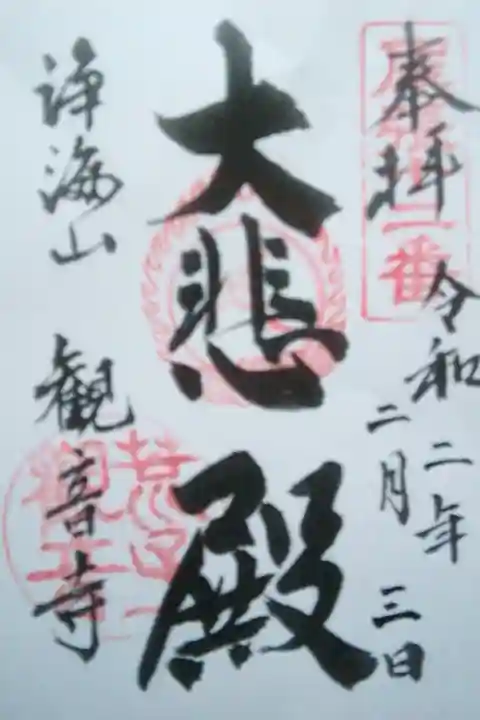 奉拝
令和二年
二月三日
大悲殿
浄海山 観音寺